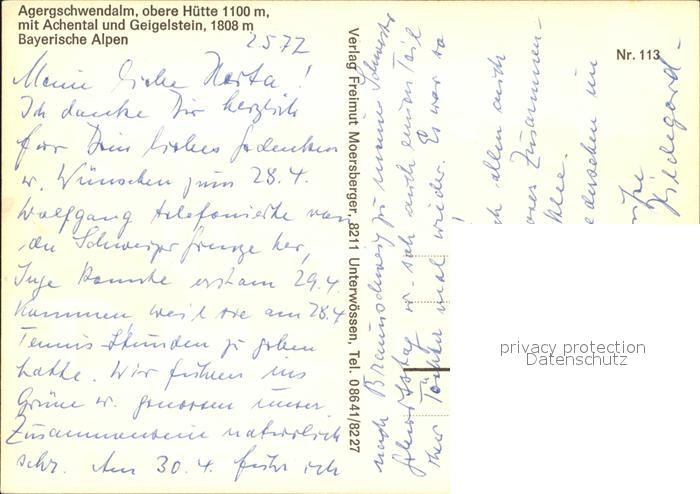 Agergschwendalm, obere Hütte 1100 m,
mit Achental und Geigelstein, 1808 m
Bayerische Alpen
Nr. 113
2.5.72
Meine liebe Herta!
Ich danke Dir herzlich
für Dein liebes Gedenken
u. Wünschen zum 28.4.
Wolfgang telefonierte von
der Schweizer Grenze her,
Inge konnte erst am 29.4.
kommen weil sie am 28.4.
Tennis-Stunden zu geben
hatte. Wir fuhren ins
Grüne u. genossen unser
Zusammensein natürlich
sehr. Am 30.4. fuhr ich
Verlag Freimut Moersberger, 8211 Unterwössen, Tel. 08641/8227
nach Braunschweig zu meine Schwester
Geburtstag u. sah auch einen Teil
ihrer Töchter mal wieder. Es war so
allen auch
Zusammen-
Hildegard-
privacy protection
Datenschutz